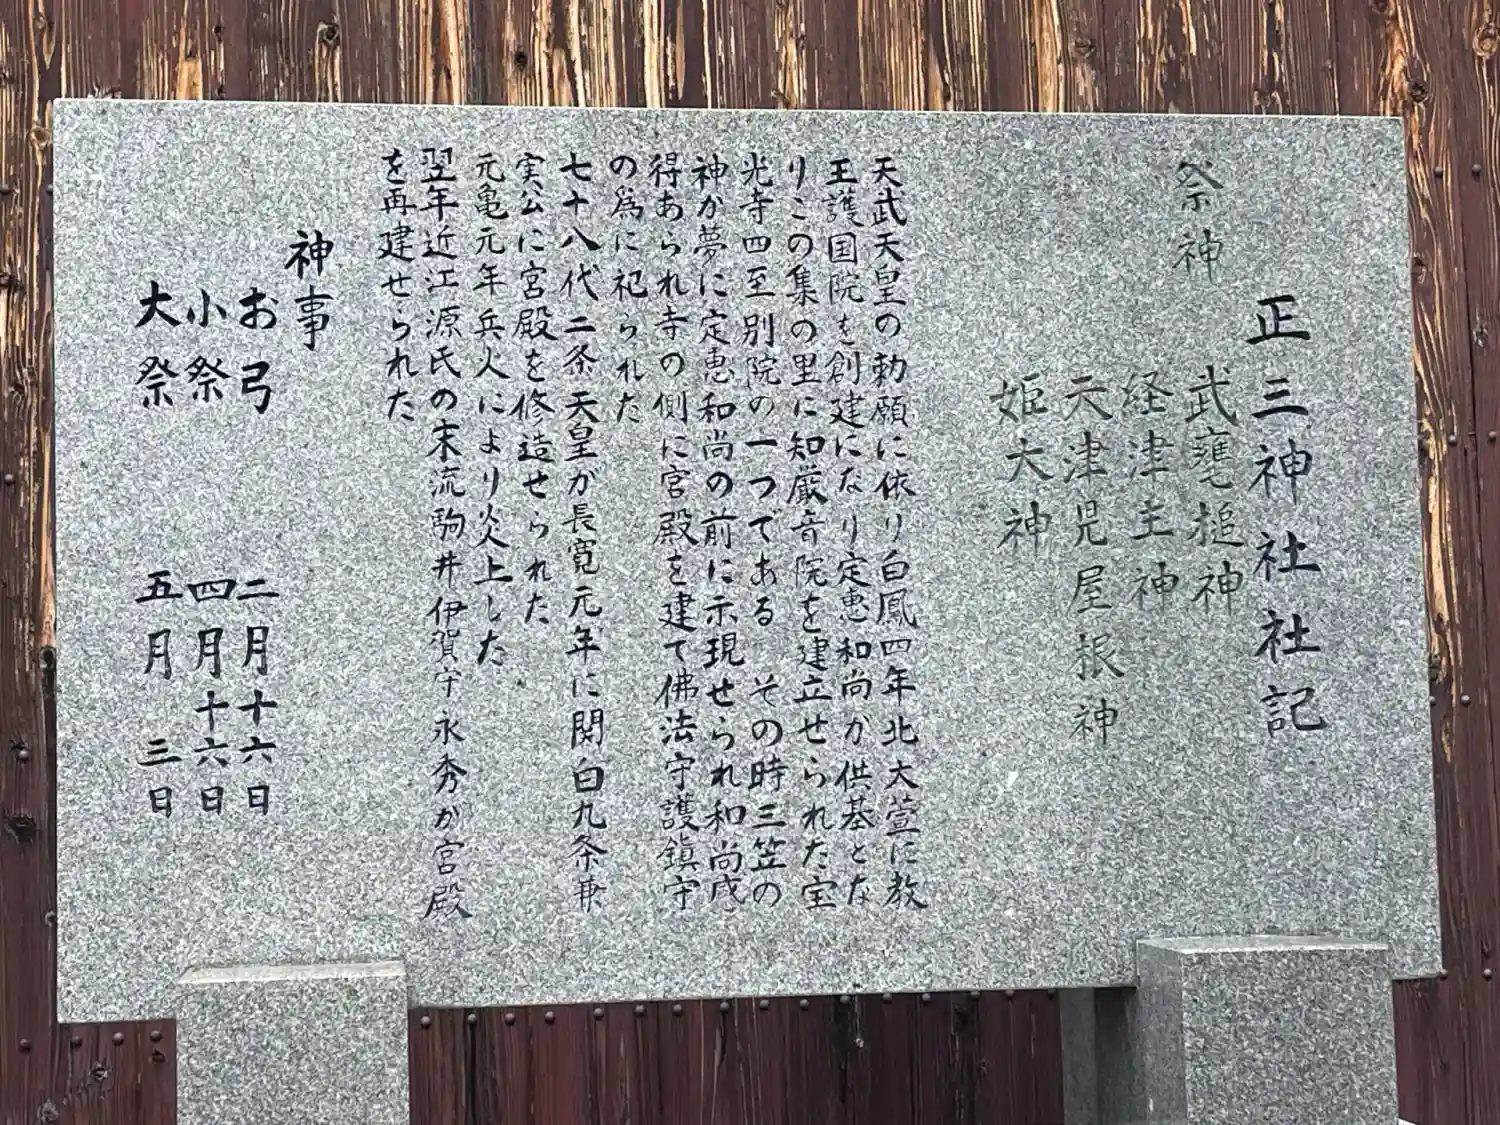 正三神社社記
祭神
武甕槌神
経津主神
天津児屋根神
姫大神
天武天皇の勅願に依り白鳳四年北大萱に教
王護国院を創建になり定恵和尚が供基とな
りこの集の里に知厳音院を建立せられた宝
光寺四至別院の一つである その時三笠の
神が夢に定恵和尚の前に示現せられ和尚感
得あられ寺の側に宮殿を建て佛法守護鎮守
の為に祀られた
七十八代二条天皇が長寛元年に関白九条兼
実公に宮殿を修造せられた
元亀元年兵火により炎上した
翌年近江源氏の末流駒井伊賀守永秀が宮殿
を再建せられた
神事
お弓 二月十六日
小祭 四月十六日
大祭 五月三日